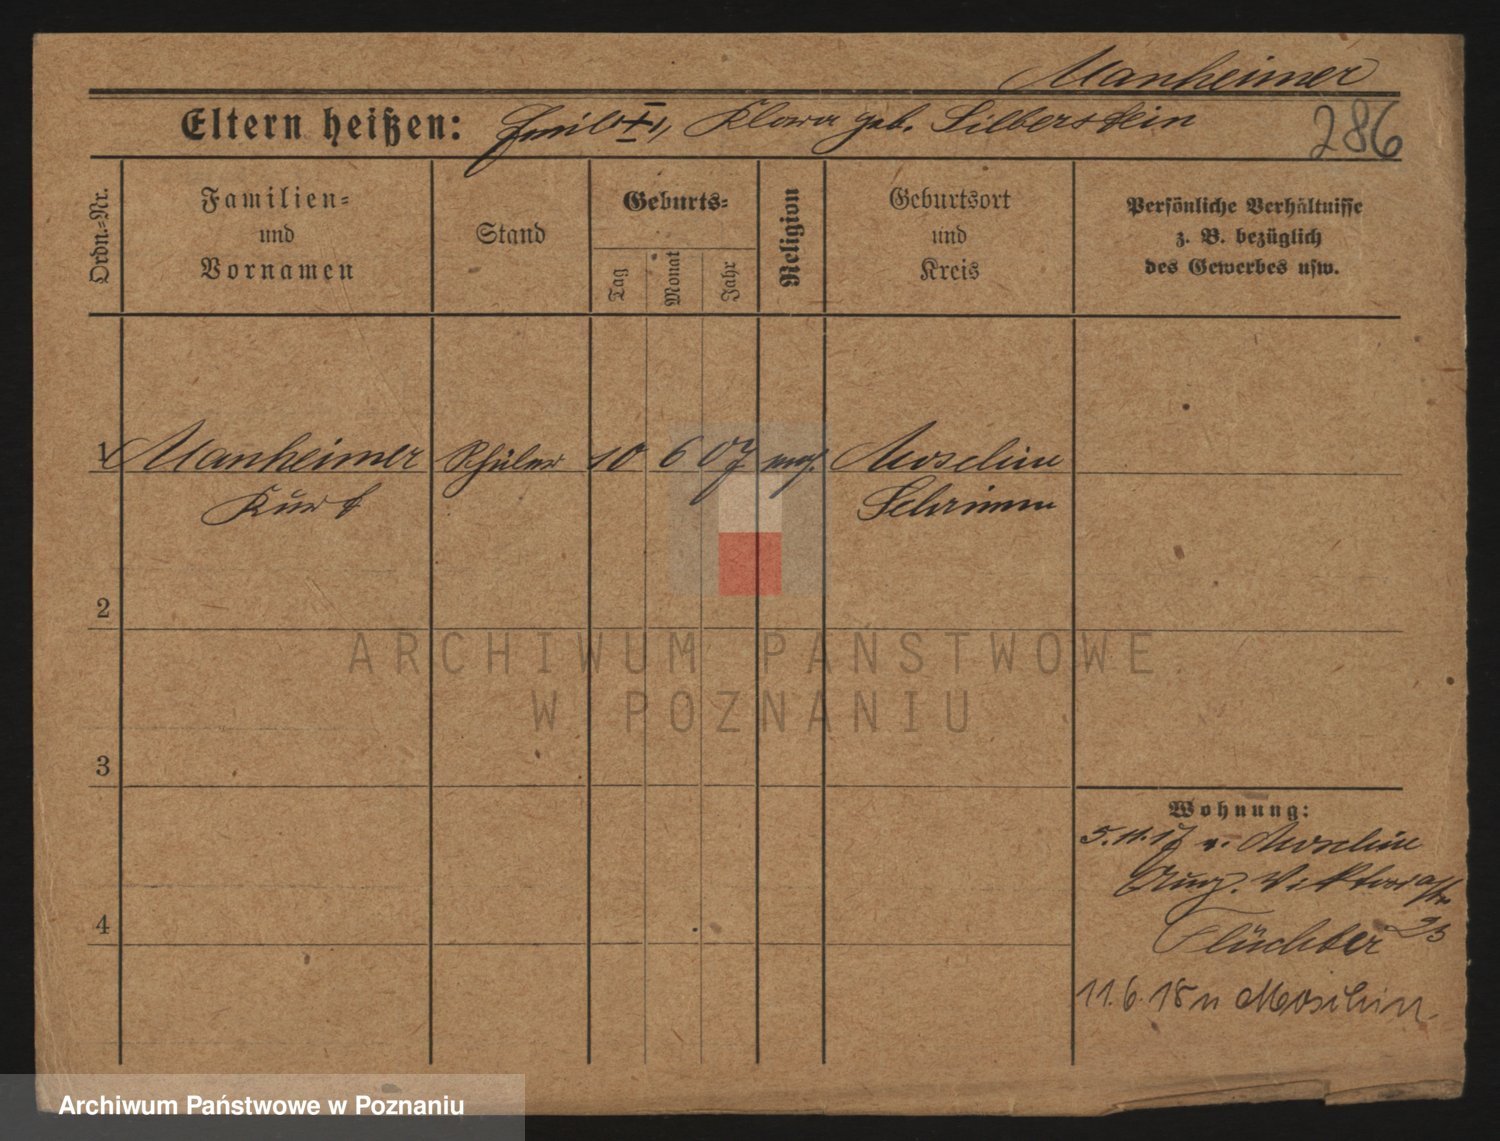 Manheimer
Eltern heißen: Emil +, Klara geb. Silberstein
286
Ordn.-Nr.
Familien-
und
Vornamen
Stand
Geburts-
Tag
Monat
Jahr
Religion
Geburtsort
und
Kreis
Persönliche Verhältnisse
z. B. bezüglich
des Gewerbes usw.
1 Manheimer Schüler 10 6 07 mos. Moschin
Kurt Schrimm
2
3
4
Wohnung:
5.11.17 v. Moschin
Viktoriastr
23
Tüchler
11.6.18 n Moschin
ARCHIWUM PAŃSTWOWE
W POZNANIU
Archiwum Państwowe w Poznaniu